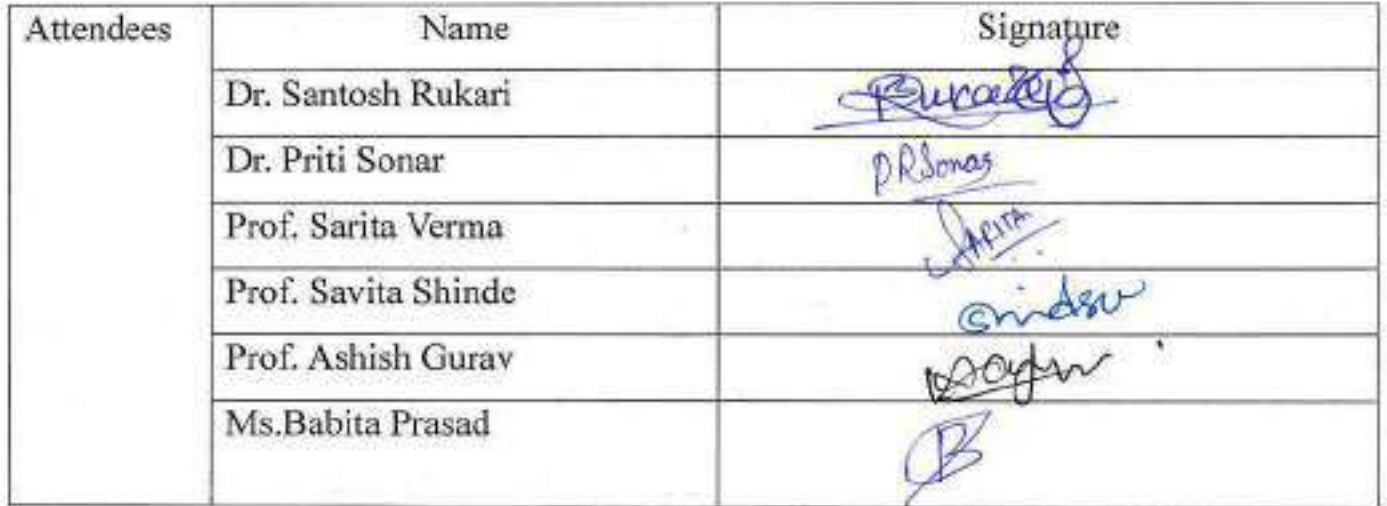 Attendees Name Signature
Dr. Santosh Rukari
Dr. Priti Sonar PRSonar
Prof. Sarita Verma SARITA
Prof. Savita Shinde
Prof. Ashish Gurav
Ms.Babita Prasad B